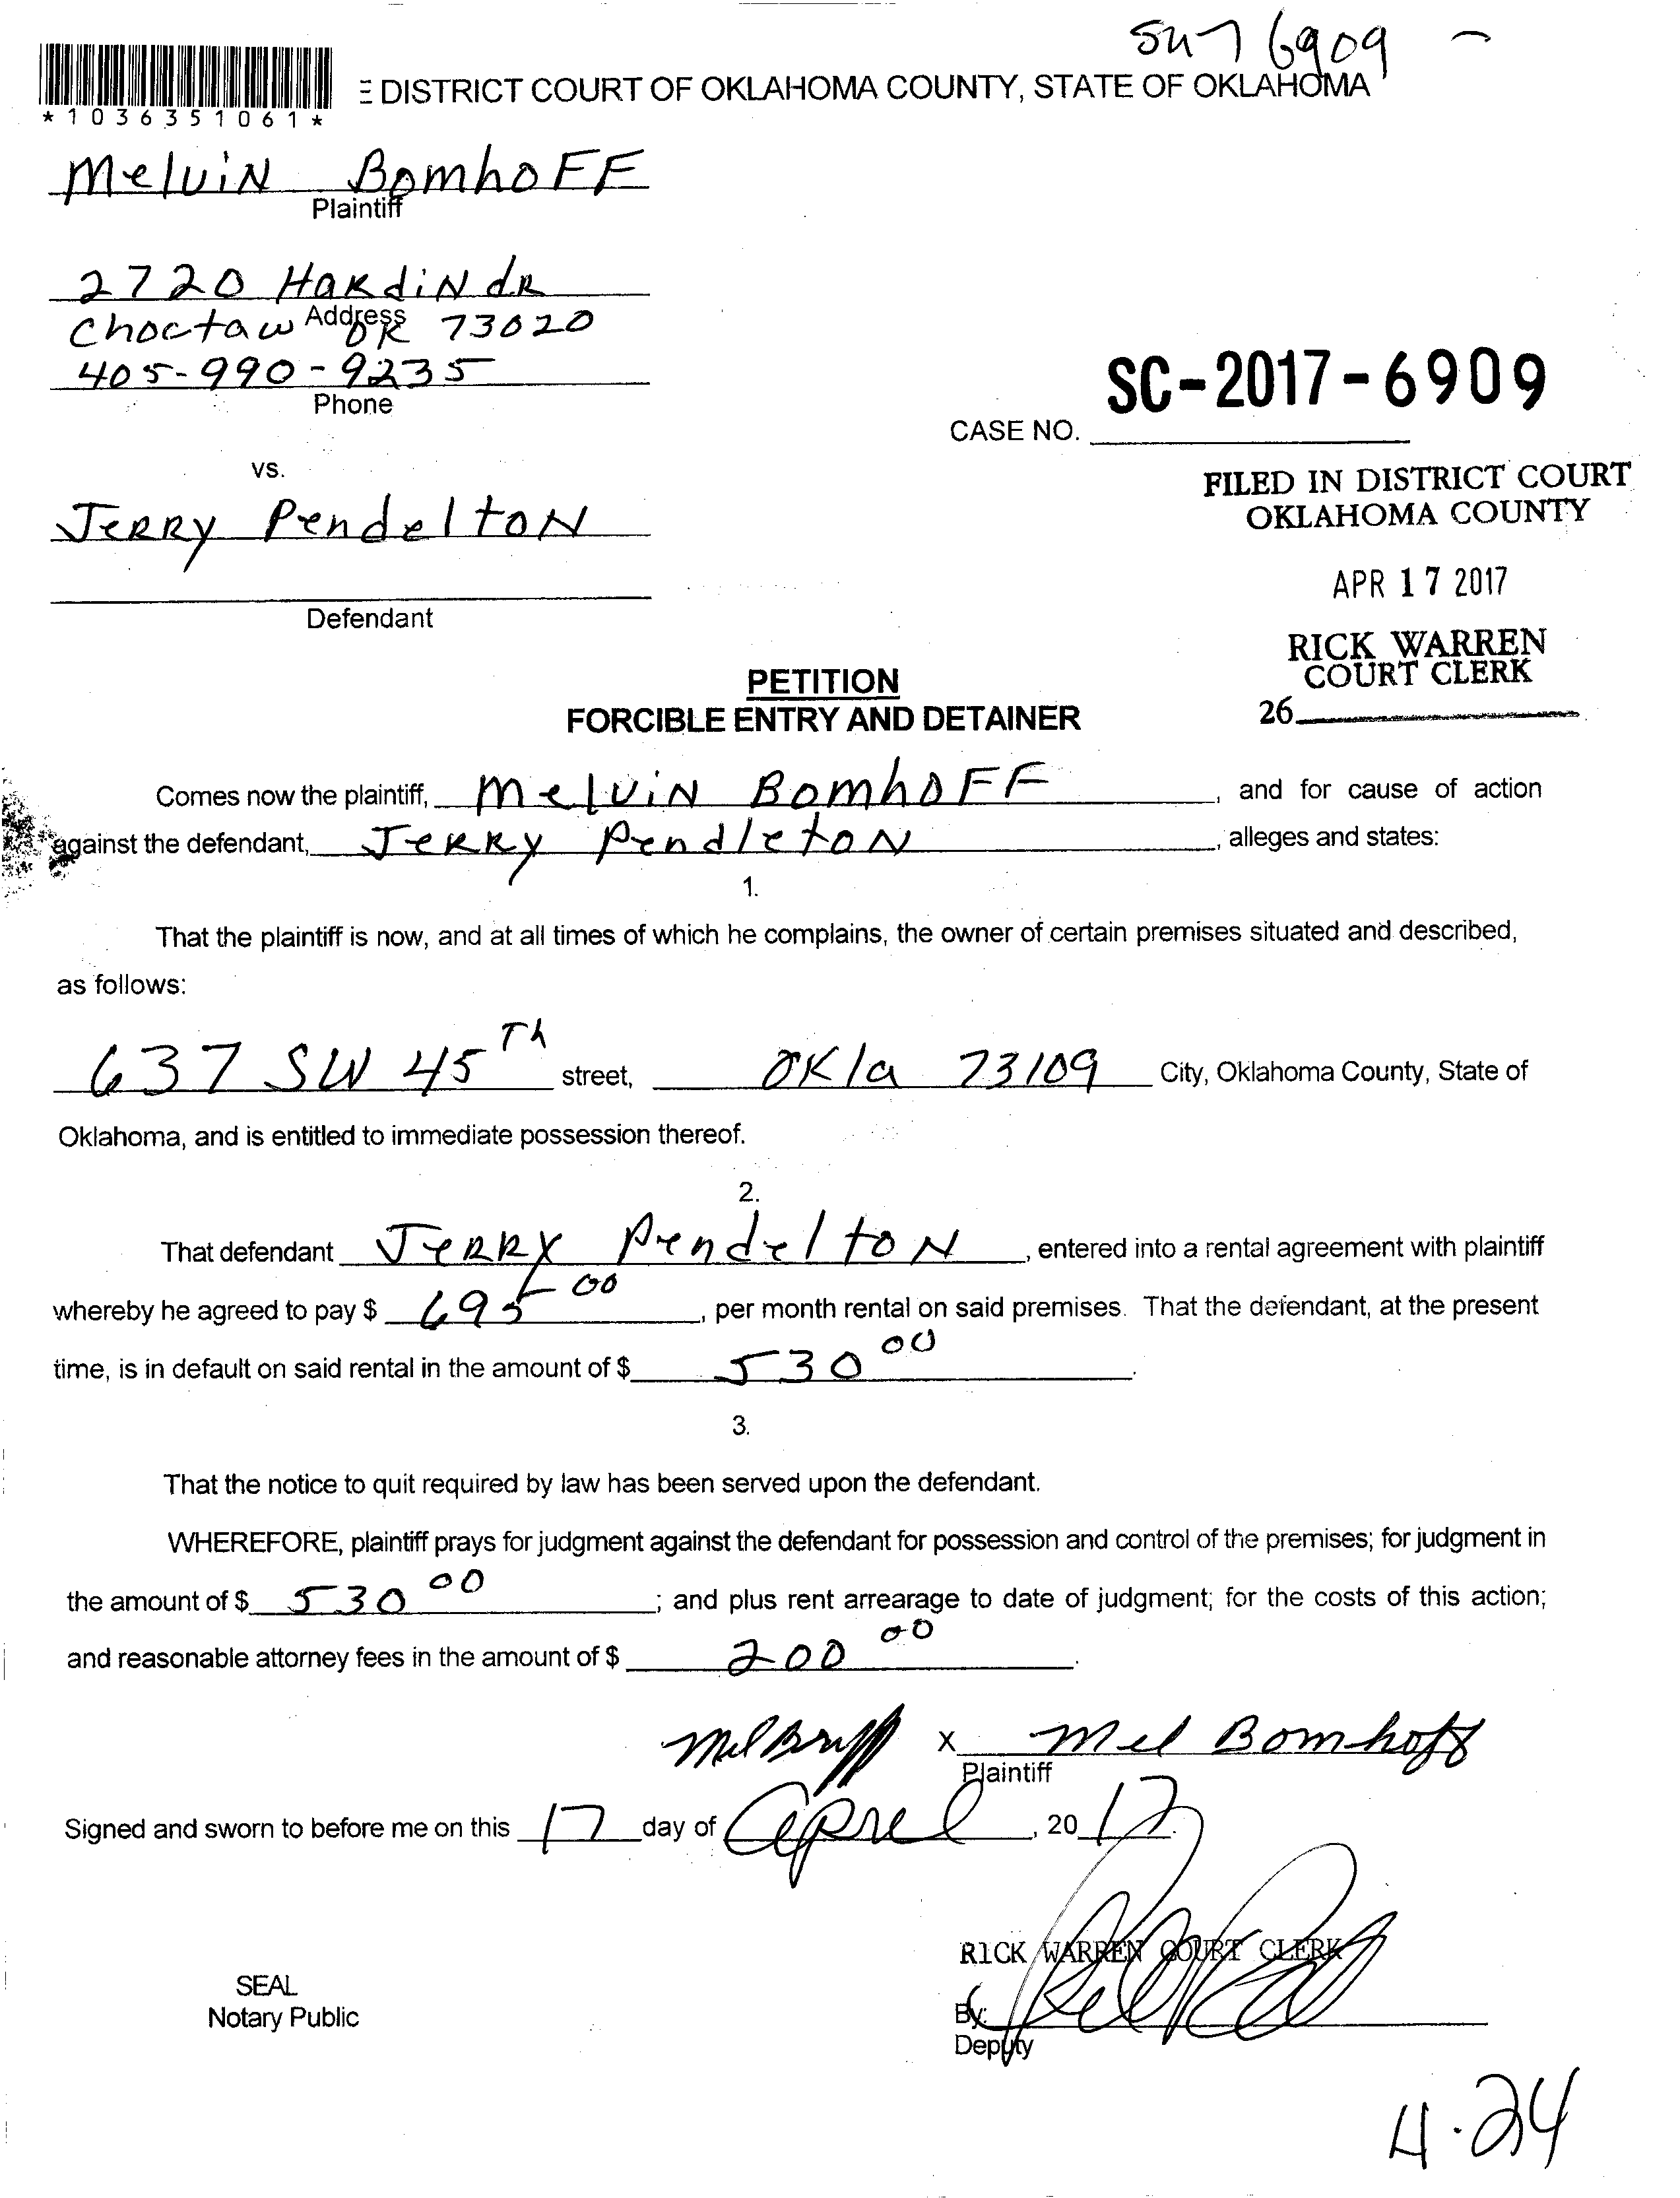 6909 -
E DISTRICT COURT OF OKLAHOMA COUNTY, STATE OF OKLAHOMA
*1036351061*
Melvin Bomhoff
Plaintiff
2720 Hardin dr
Address
Choctaw OK 73020
405-990-9235
Phone
SC-2017-6909
CASE NO.
vs.
FILED IN DISTRICT COURT
OKLAHOMA COUNTY
Jerry Pendelton
APR 17 2017
Defendant
RICK WARREN
COURT CLERK
26
PETITION
FORCIBLE ENTRY AND DETAINER
Comes now the plaintiff, Melvin Bomhoff, and for cause of action
against the defendant, Jerry Pendleton, alleges and states:
1.
That the plaintiff is now, and at all times of which he complains, the owner of certain premises situated and described,
as follows:
637 SW 45Th street, Okla 73109 City, Oklahoma County, State of
Oklahoma, and is entitled to immediate possession thereof.
2.
That defendant Jerry Pendelton, entered into a rental agreement with plaintiff
whereby he agreed to pay $ 695 00, per month rental on said premises. That the defendant, at the present
time, is in default on said rental in the amount of $ 530 00.
3.
That the notice to quit required by law has been served upon the defendant.
WHEREFORE, plaintiff prays for judgment against the defendant for possession and control of the premises; for judgment in
the amount of $ 530 00; and plus rent arrearage to date of judgment; for the costs of this action;
and reasonable attorney fees in the amount of $ 200 00.
x Mel Bomhoff
Plaintiff
Signed and sworn to before me on this 17 day of April, 2017.
RICK WARREN COURT CLERK
SEAL
Notary Public
By:
Deputy
4.24